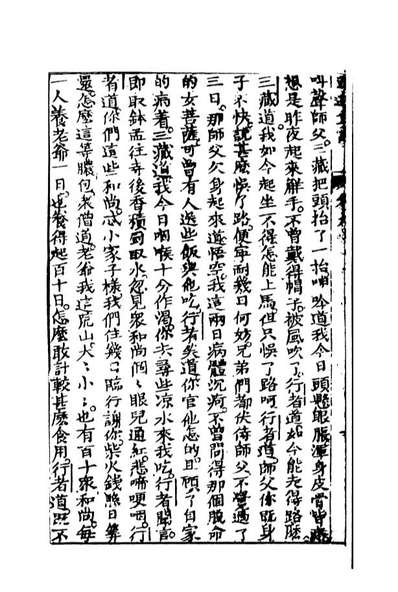 叫聲師父三藏把頭抬了一抬呻吟道我今日頭懸眼脹渾身皮骨皆
想是昨夜起來解手。不曾戴得帽子。被風吹了。行者道如今能去得路麽
三藏道我如今起坐不得怎能上馬但只悞了路呵行者道。師父你既身
子不快說甚麽悞了路。便寧耐幾日何妨兄弟們都伏侍師父不覺過了
三日。那師父欠身起來道悟空。我這兩日病體沉疴。不曾問得那個脫命
的女菩薩。可曾有人送些飯與他吃。行者笑道你管他怎的。且顧了自家
的病着。三藏道。我今日咽喉十分作渴。你去尋些凉水來我吃。行者聞言。
即取鉢盂往寺後香積厨取水忽見衆和尚個々眼兒通紅悲啼哽咽。行
者道你們這些和尚忒小家子樣。我們住幾日。臨行謝你柴火錢照日算
還怎麽這等膿包衆僧道。老爺我這荒山。大々小々也有百十衆和尚。每
一人養老爺一日。也養得起百十日。怎麽敢計較甚麽食用。行者道既不